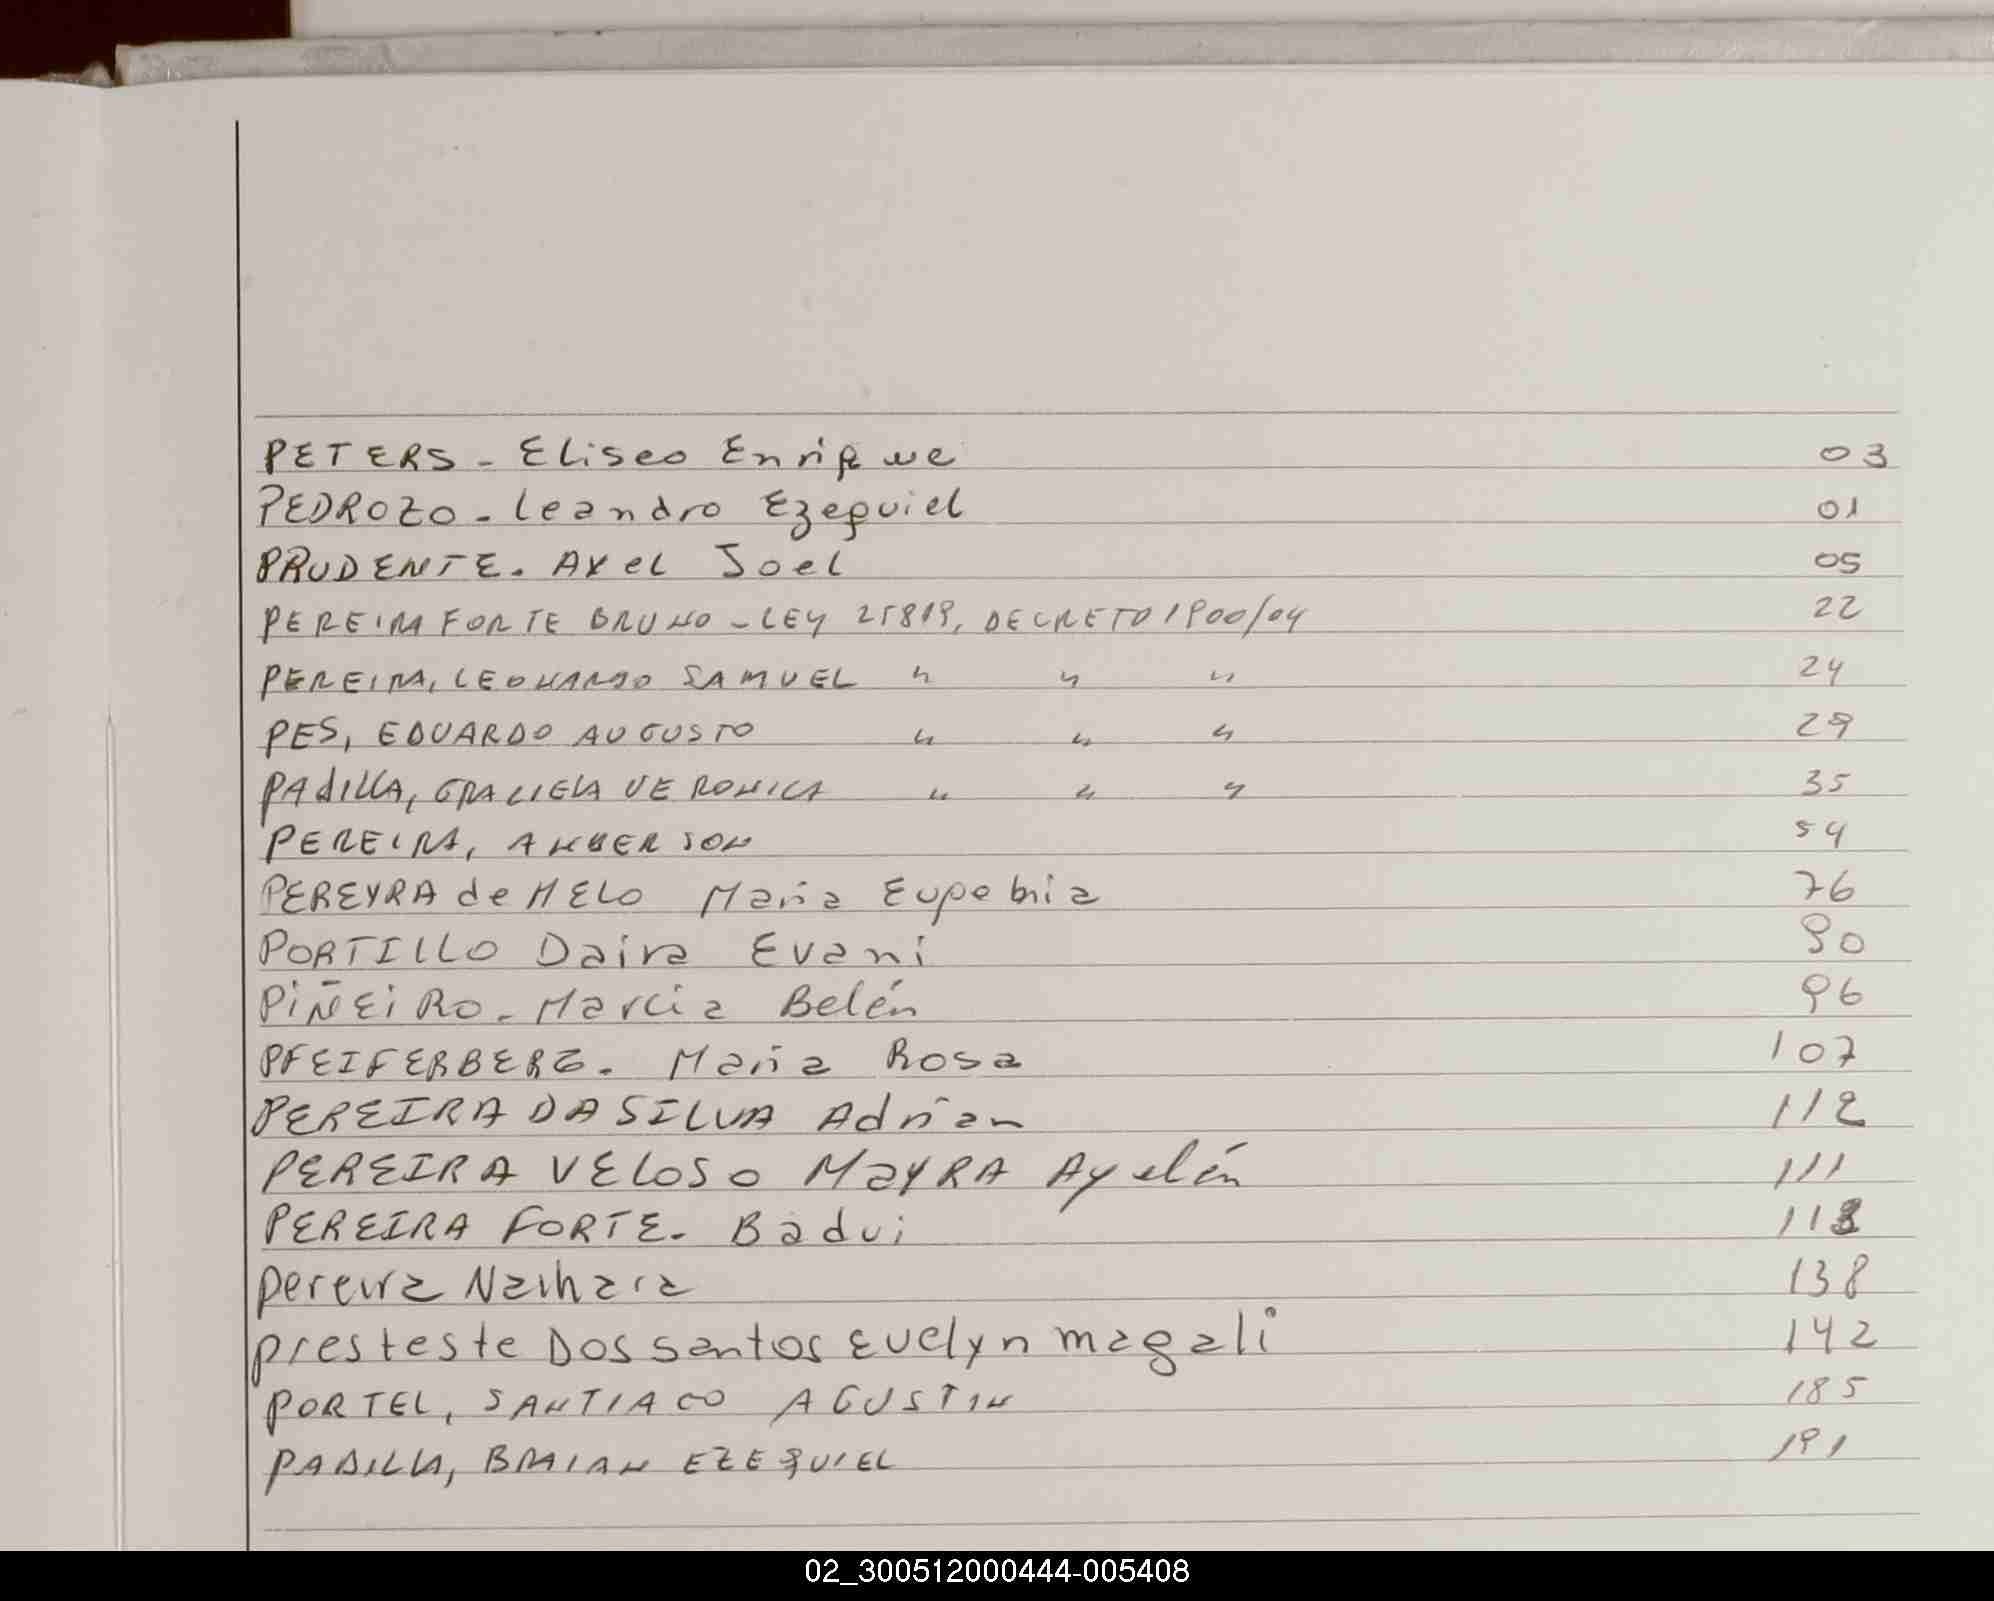 PETERS - Eliseo Enrique 03
PEDROZO - Leandro Ezequiel 01
PRUDENTE. Axel Joel 05
PEREIRA FORTE BRUNO - LEY 25819, DECRETO 1900/04 22
PEREIRA, LEONARDO SAMUEL " " " 24
PES, EDUARDO AUGUSTO " " " 29
PADILLA, GRACIELA VERONICA " " " 35
PEREIRA, ANDERSON 54
PEREYRA de MELO Maria 76
PORTILLO Daira Evani 90
PIÑEIRO - Marcia Belén 96
PFEIFERBERG. Maria Rosa 107
PEREIRA DA SILVA Adrian 112
PEREIRA VELOSO MAYRA Ayelén 111
PEREIRA FORTE - Badui 113
pereira Naihara 138
presteste Dos santos Evelyn magali 142
PORTEL, SANTIAGO AGUSTIN 185
PADILLA, BRAIAN EZEQUIEL 191
02_300512000444-005408